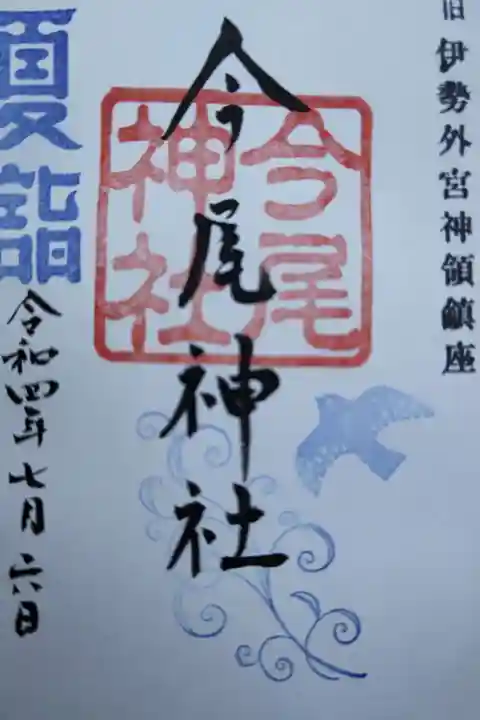 旧 伊勢外宮神領鎮座
今尾神社
今尾
神社
夏詣
令和四年七月六日